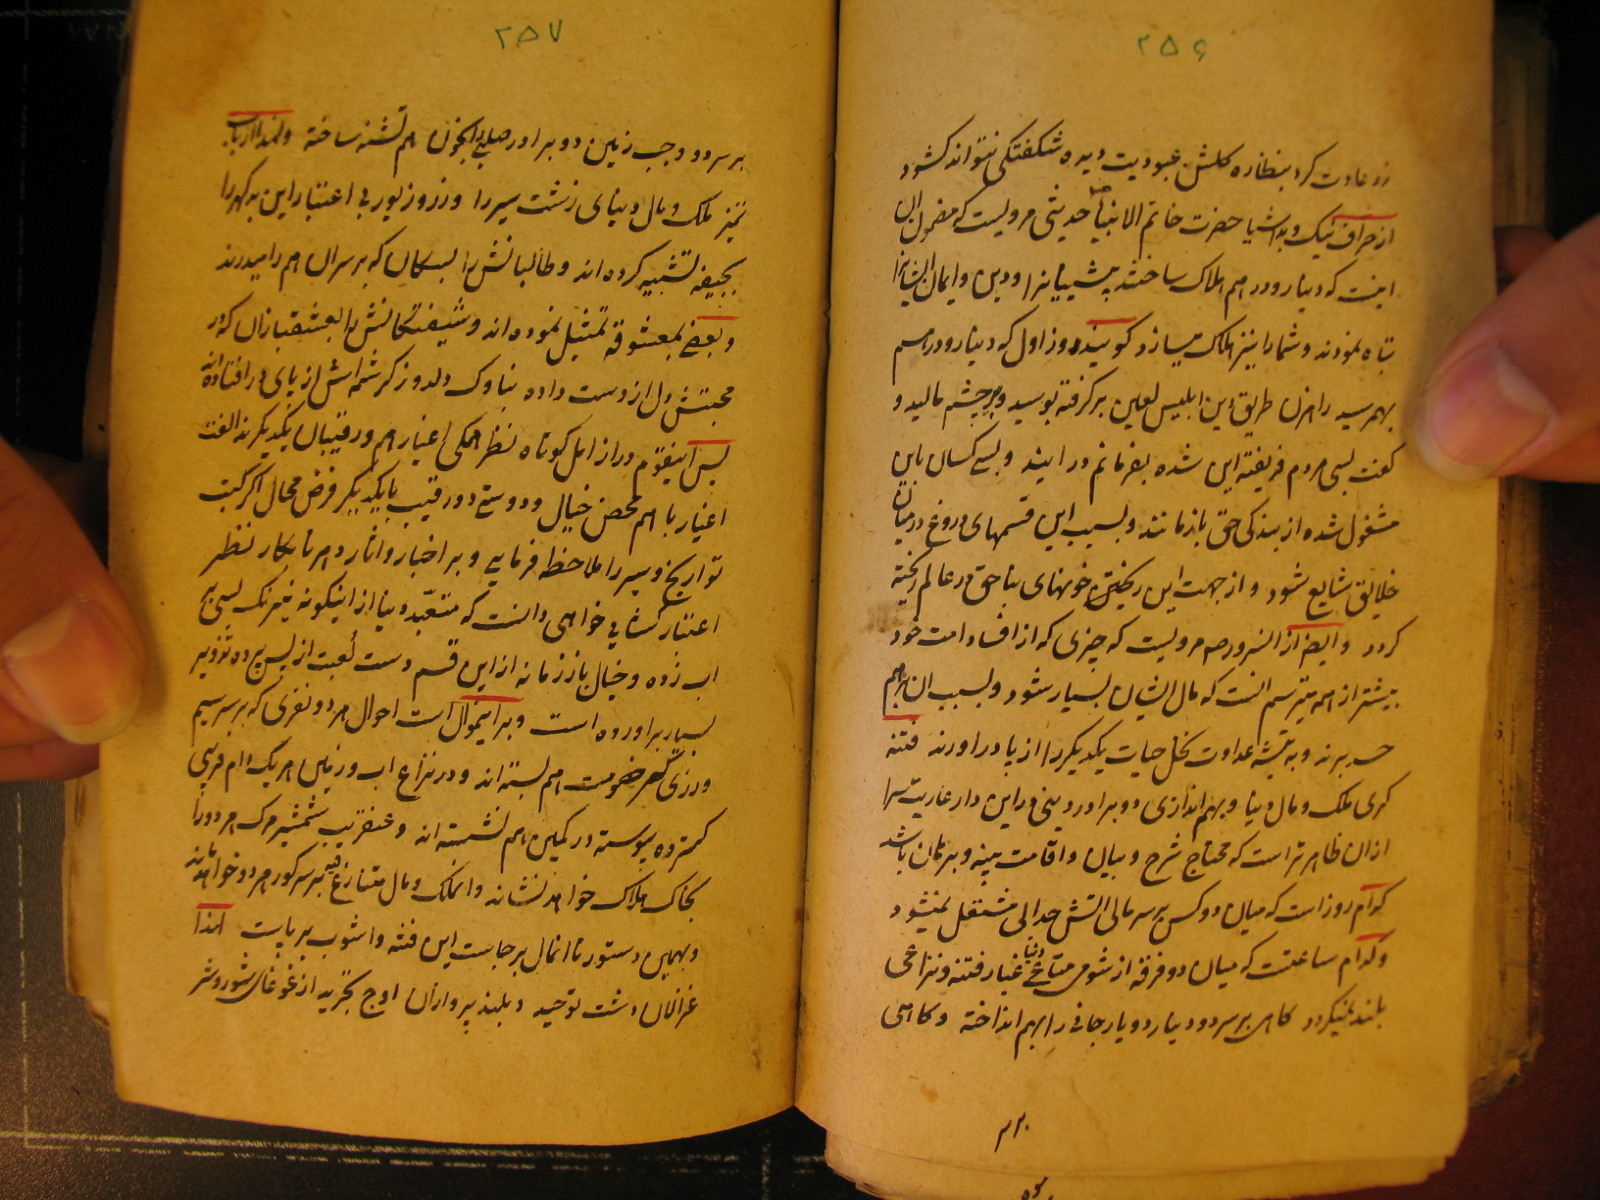 ۲۵۶
زد عادت کرد بنظاره گلشن عبودیت دیده شگفتگی نتواند گشود
از صراف نیک و بد اشیا حضرت خاتم الانبیا ص حدیثی مرویست که مضمون آن
اینست که دینار و درهم هلاک ساختند پیشینیانرا و دین و ایمان ایشانرا
تباه نمودند و شما را نیز هلاک میسازد گویند روز اول که دینار و درهم
بهم رسید راهزن طریق دین ابلیس لعین برگرفته بوسید و بر چشم مالید و
گفت بسی مردم فریفته این شده بفرمانم درآیند و بسی کسان باین
مشغول شده از بندگی حق بازمانند و بسبب این قسمهای دروغ درمیان
خلایق شایع شود و از جهت این ریختن خونهای بناحق در عالم ریخته
گردد و ایضا از انسرور ص مرویست که چیزی که از افساد امت خود
بیشتر از همه میترسم انست که مال ایشان بسیار شود و بسبب ان بر هم
حسد برند و به تیشه عداوت نخل حیات یکدیگر را از پا دراورند فتنه
گری ملک و مال دنیا و بهم اندازی دو برادر دینی در این دار عاریت سرا
ازان ظاهرتر است که محتاج شرح و بیان و اقامت بینه و برهان باشد
کدام روز است که میان دو کس بر سر مالی اتش جدالی مشتعل نمیشود
و کدام ساعتست که میان دو فرقه از شومی متاع دنیا غبار فتنه و نزاعی
بلند نمیگردد گاهی بر سر دو دینار دو یار جانی را بهم انداخته و گاهی
۲۵۷
بر سر دو وجب زمین دو برادر صلبی را بخون هم تشنه ساخته ولهذا ارباب
تمیز ملک و مال دنیای زشت سیر را و زر و زیور بی اعتبار این بدگهر را
بجیفه تشبیه کرده اند و طالبانش را بسگان که بر سر ان هم را میدرند
و بعضی بمعشوقه تمثیل نموده اند و شیفتگانش را بعشقبازان که در
محبتش دل از دست داده بناوک دلدوز کرشمه اش از پای درافتاده اند
پس اینقوم دراز امل کوتاه نظر همگی اغیار هم و رقیبان یکدیگرند الفت
اغیار با هم محض خیال و دوستی دو رقیب با یکدیگر فرض محال اگر کتب
تواریخ و سیر را ملاحظه فرمایی و بر اخبار و اثار دهر نابکار نظر
اعتبار گشایی خواهی دانست که متعبده دنیا از اینگونه نیرنگ بسی بر
اب زده و خیال باز زمانه از این قسم دست لعبت از پس پرده تزویر
بسیار براورده است و بر اینموال است احوال هر دو نفری که بر سر سیم
و زری کمر خصومت هم بسته اند و در نزاع اب و زمین هر یک دام فریبی
گسترده پیوسته در کمین هم نشسته اند و عنقریب شمشیر مرگ هر دو را
بخاک هلاک خواهد نشاند و انملک و مال متنازع فیه بر سر گور هر دو خواهد ماند
و بهمین دستور تا انمال برجاست این فتنه و اشوب برپاست لهذا
غزالان دشت توحید و بلند پروازان اوج تجرید از غوغای شور و شر